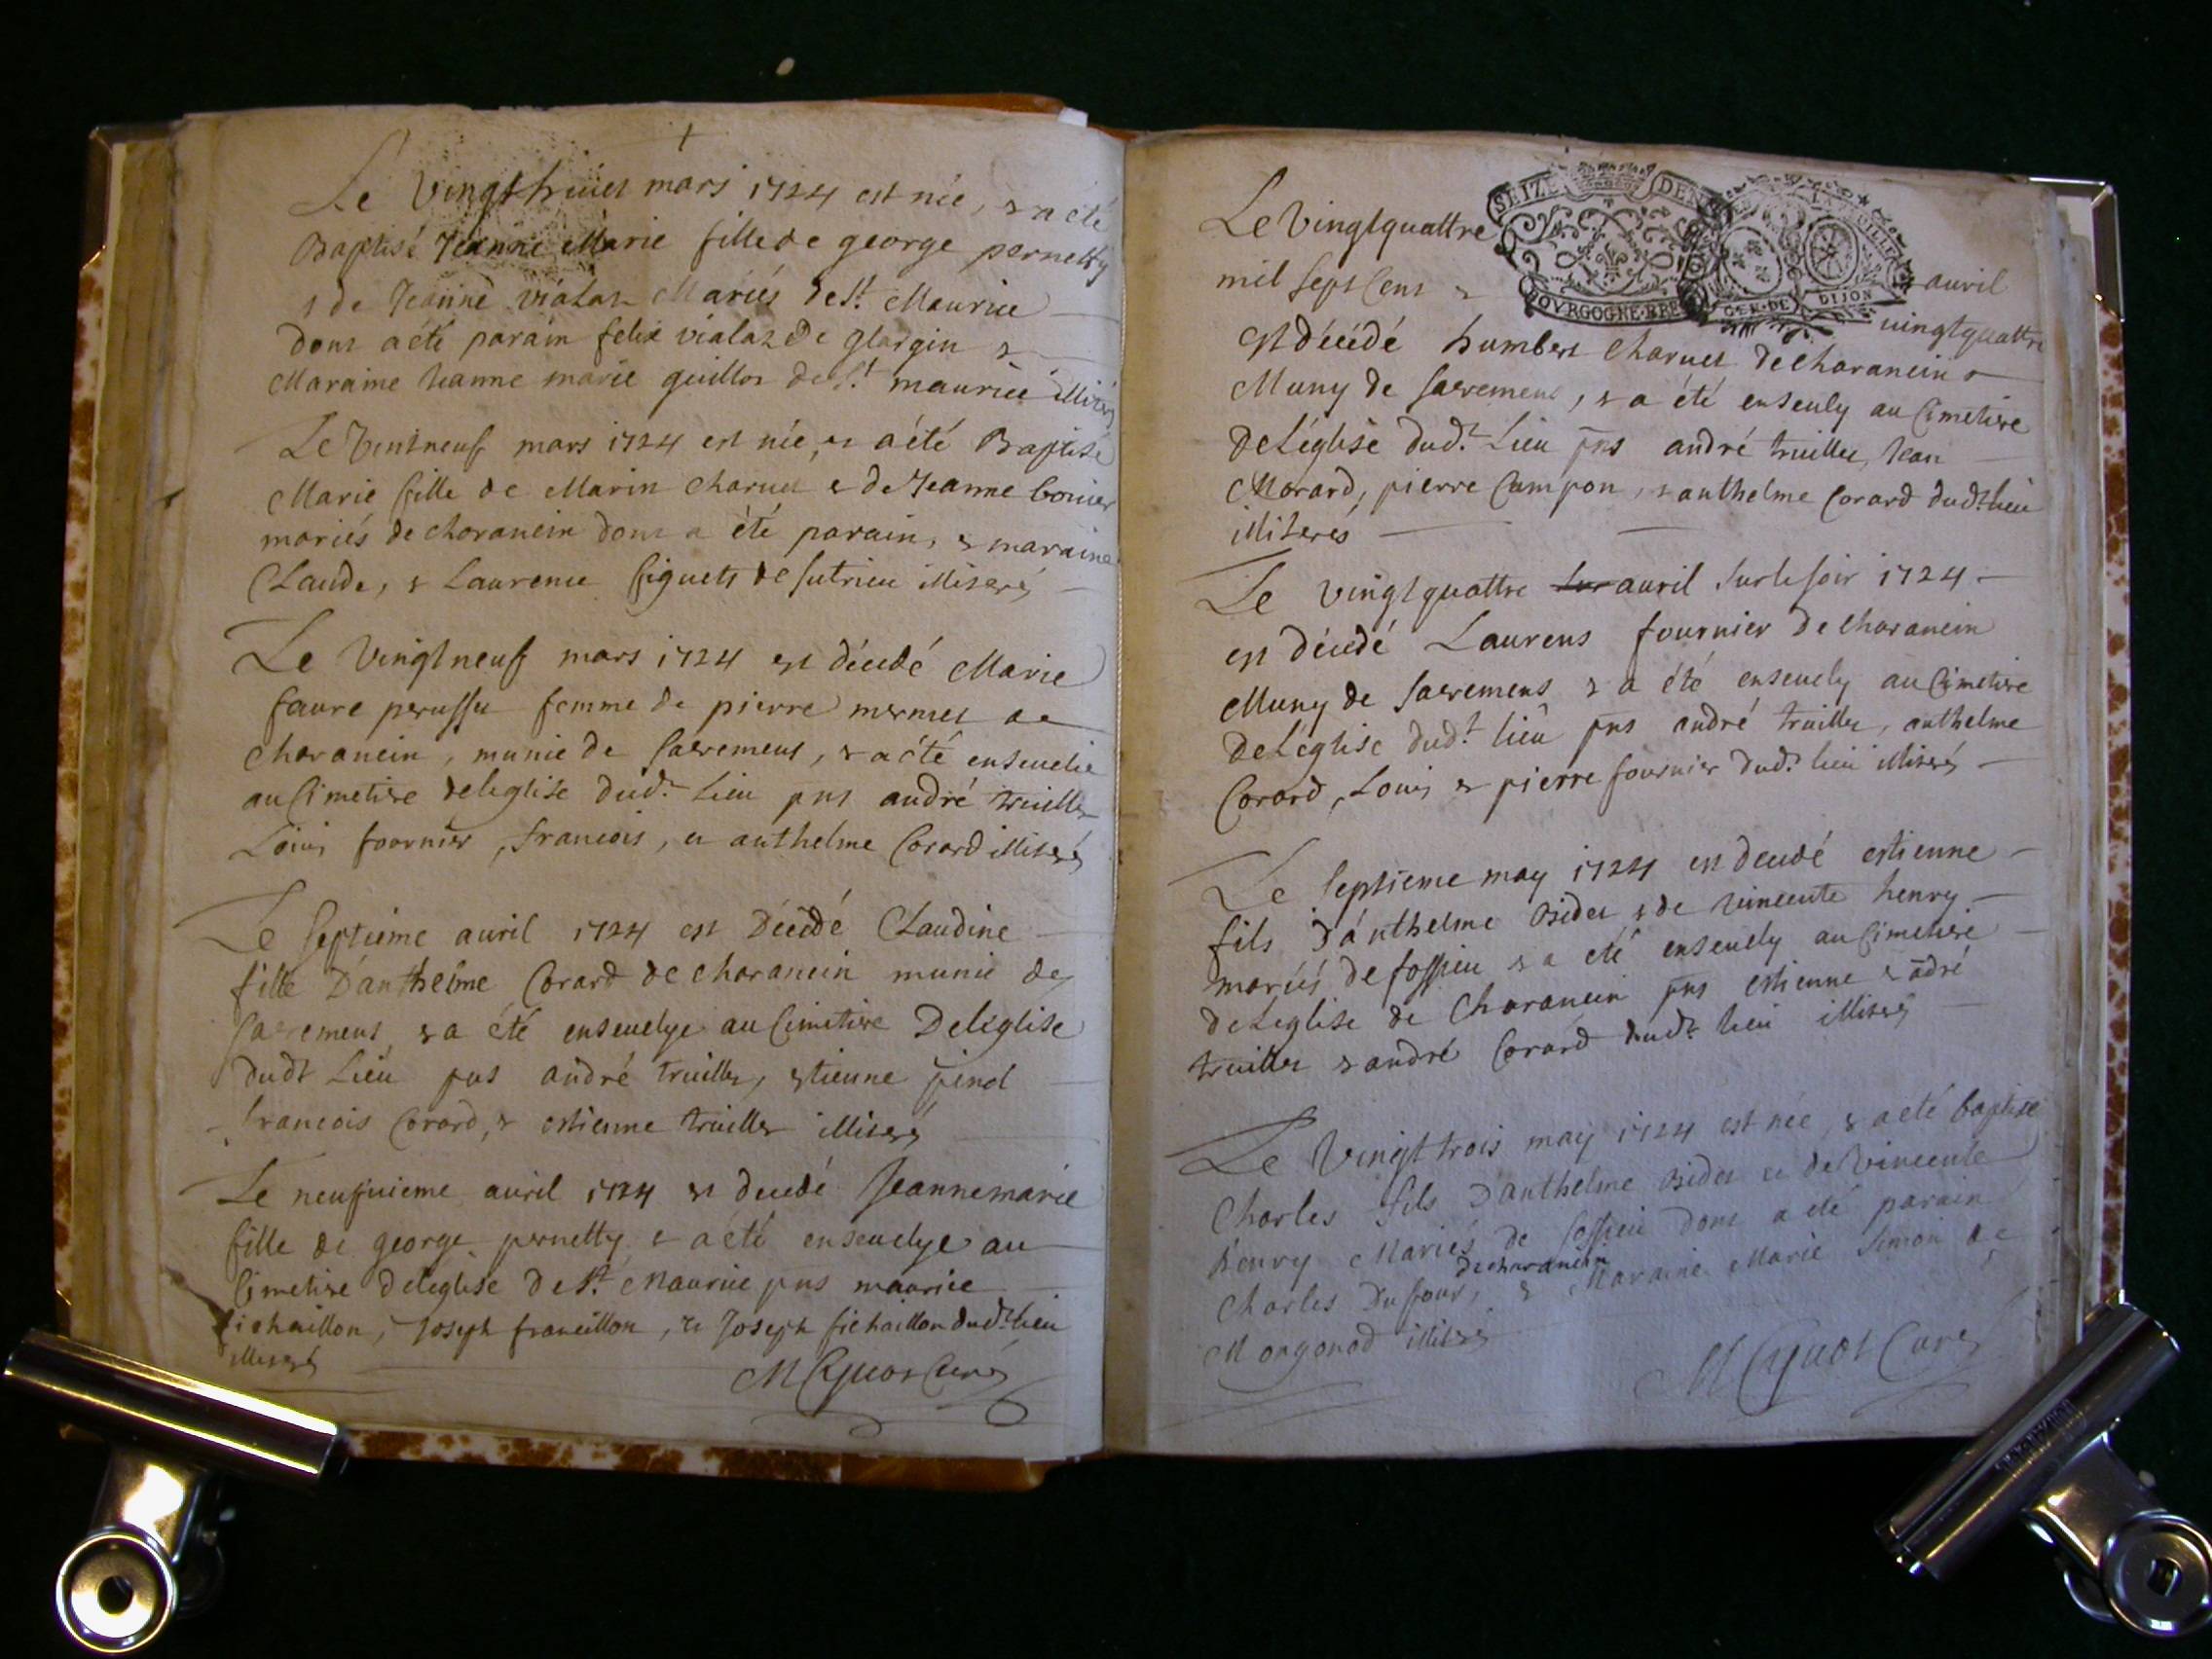 Le Vingthuict mars 1724 est née, & a été
Baptisé Jeanne Marie fille de george pernetty
& de Jeanne vialat Mariés de St. Maurice
dont a été parain felix vialat De glargin &
Maraine Jeanne marie guillot de St. maurice illiterés
Le Vintneuf mars 1724 est née, et a été Baptisé
Marie fille de Marin Charuet & de Jeanne bouier
mariés de choranein dont a été parain, & maraine
Claude, & Laurence figuets de sutrieu illiterés
Le Vingtneuf mars 1724 est décédé Marie
faure perusset femme de pierre mermet de
choranein, munie de sacremens, & a été enseuelie
au Cimetiere deleglise dud.t Lieu pns andré truillet
Louis fournier, francois, et anthelme Corard illiterés
Le septieme auril 1724 est Décédé Claudine
fille D'anthelme Corard de choranein munie des
sacremens & a été enseuelye au Cimetiere Deleglise
dudt Lieu pns andré truillet, estienne pinol
francois Corard, & estienne truillet illiterés
Le neufuieme auril 1724 est decedé Jeannemarie
fille de george pernetty & a été enseuelye au
Cimetiere deleglise de St. Maurice pns maurice
fichaillon, Joseph francillon, et Joseph fichaillon dud.t lieu
illiterés
M Cyuot Curé
SEIZE DEN
BOVRGOGNE BRE
GEN. DE DIJON
Le Vingtquattre
auril
mil sept Cent &
uingtquattre
est décédé humbert Charuet de choranein
Muny de sacremens, & a été enseuly au Cimetiere
deLéglise dud.t Lieu pns andré truillet, Jean
Morard, pierre Campon, & anthelme Corard dud.t lieu
illiterés
Le vingtquattre auril sur le soir 1724
est décédé Laurens fournier De choranein
Muny de sacremens & a été enseuely au Cimetiere
deLéglise dud.t lieu pns andré truillet, anthelme
Corard, Louis & pierre fournier dud.t lieu illiterés
Le septieme may 1724 est decedé estienne
fils D'anthelme Bidet & de vincente henry
mariés de fossieu & a été enseuely au Cimetiere
deLeglise de Choranein pns estienne & ādré
truillet & andré Corard dud.t lieu illiterés
Le Vingttrois may 1724 est née, & a été baptisé
Charles fils D'anthelme Bidet et de Vincente
henry Mariés de fossieu dont a été parain
de choranein
Charles Dufour, & Maraine Marie Simon de
Mongonod illiterés
M Cyuot Curé